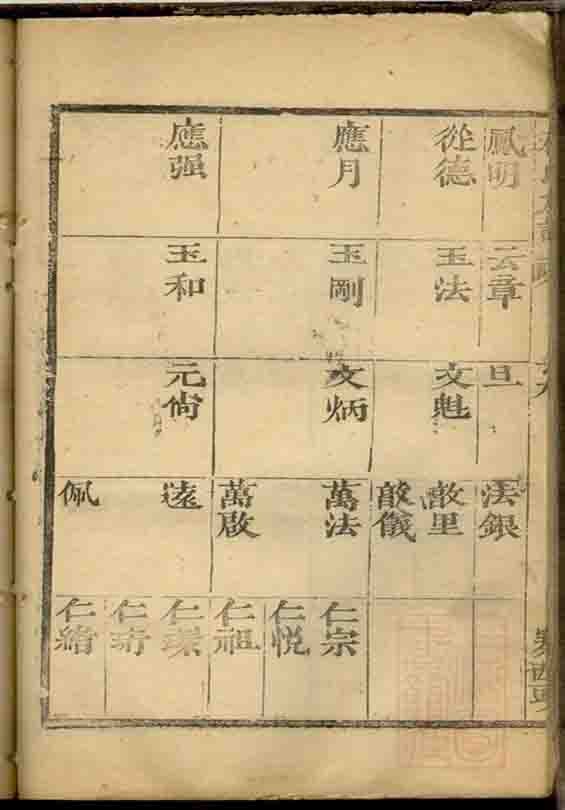 鳳明
從德
應月
應强
云章
玉法
玉剛
玉和
旦
文魁
文炳
元尙
法銀
啟里
啟儀
萬法
萬啟
遠
佩
仁宗
仁悦
仁祖
仁瑧
仁琦
仁繪